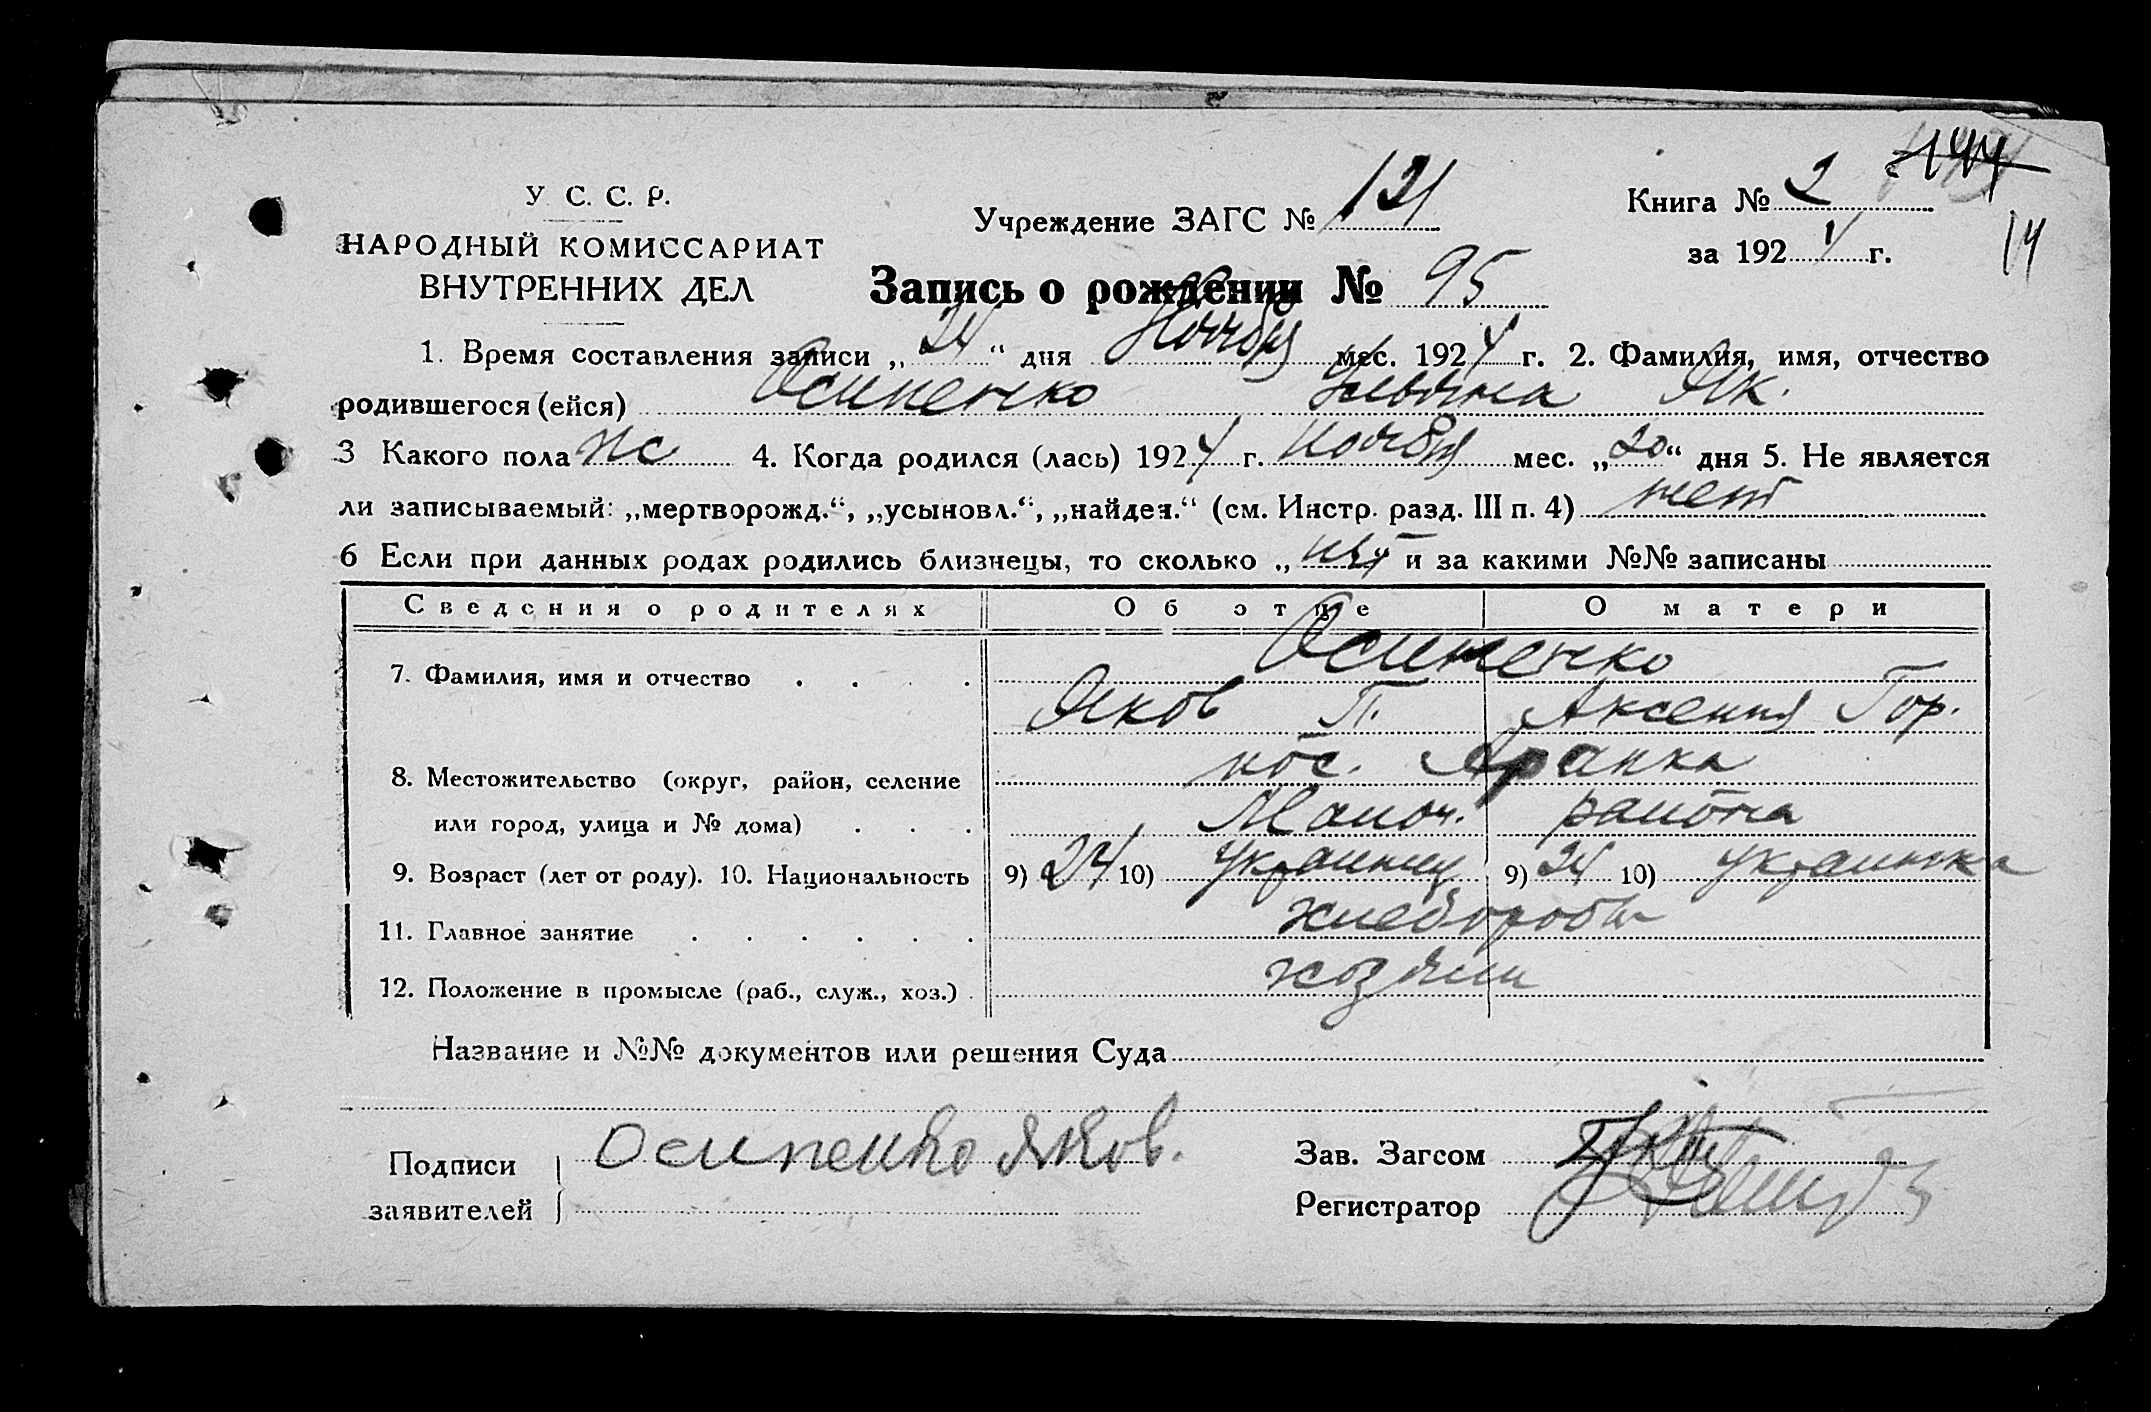 144
У. С. С. Р.
НАРОДНЫЙ КОМИССАРИАТ
ВНУТРЕННИХ ДЕЛ
Учреждение ЗАГС № 121
Книга № 2
за 1924 г.
14
Запись о рождении № 95
1. Время составления записи „24“ дня Ноября мес. 1924 г. 2. Фамилия, имя, отчество
родившегося (ейся) Осипенко Як.
3 Какого пола жс 4. Когда родился (лась) 1924 г. Ноября мес. „20“ дня 5. Не является
ли записываемый: „мертворожд.“, „усыновл.“, „найден.“ (см. Инстр. разд. III п. 4) нет
6 Если при данных родах родились близнецы, то сколько „ нет и за какими №№ записаны
Сведения о родителях Об отце О матери
Осипенко
7. Фамилия, имя и отчество . . . .
Яков П. Аксения Гор.
8. Местожительство (округ, район, селение пос.
или город, улица и № дома) . . . района
9. Возраст (лет от роду). 10. Национальность 9) 24 10) Украинец 9) 24 10) украинка
11. Главное занятие . . . . . . хлеборобы
12. Положение в промысле (раб., служ., хоз.) . хозяин
Название и №№ документов или решения Суда
Подписи Осипенко Яков.
заявителей
Зав. Загсом
Регистратор